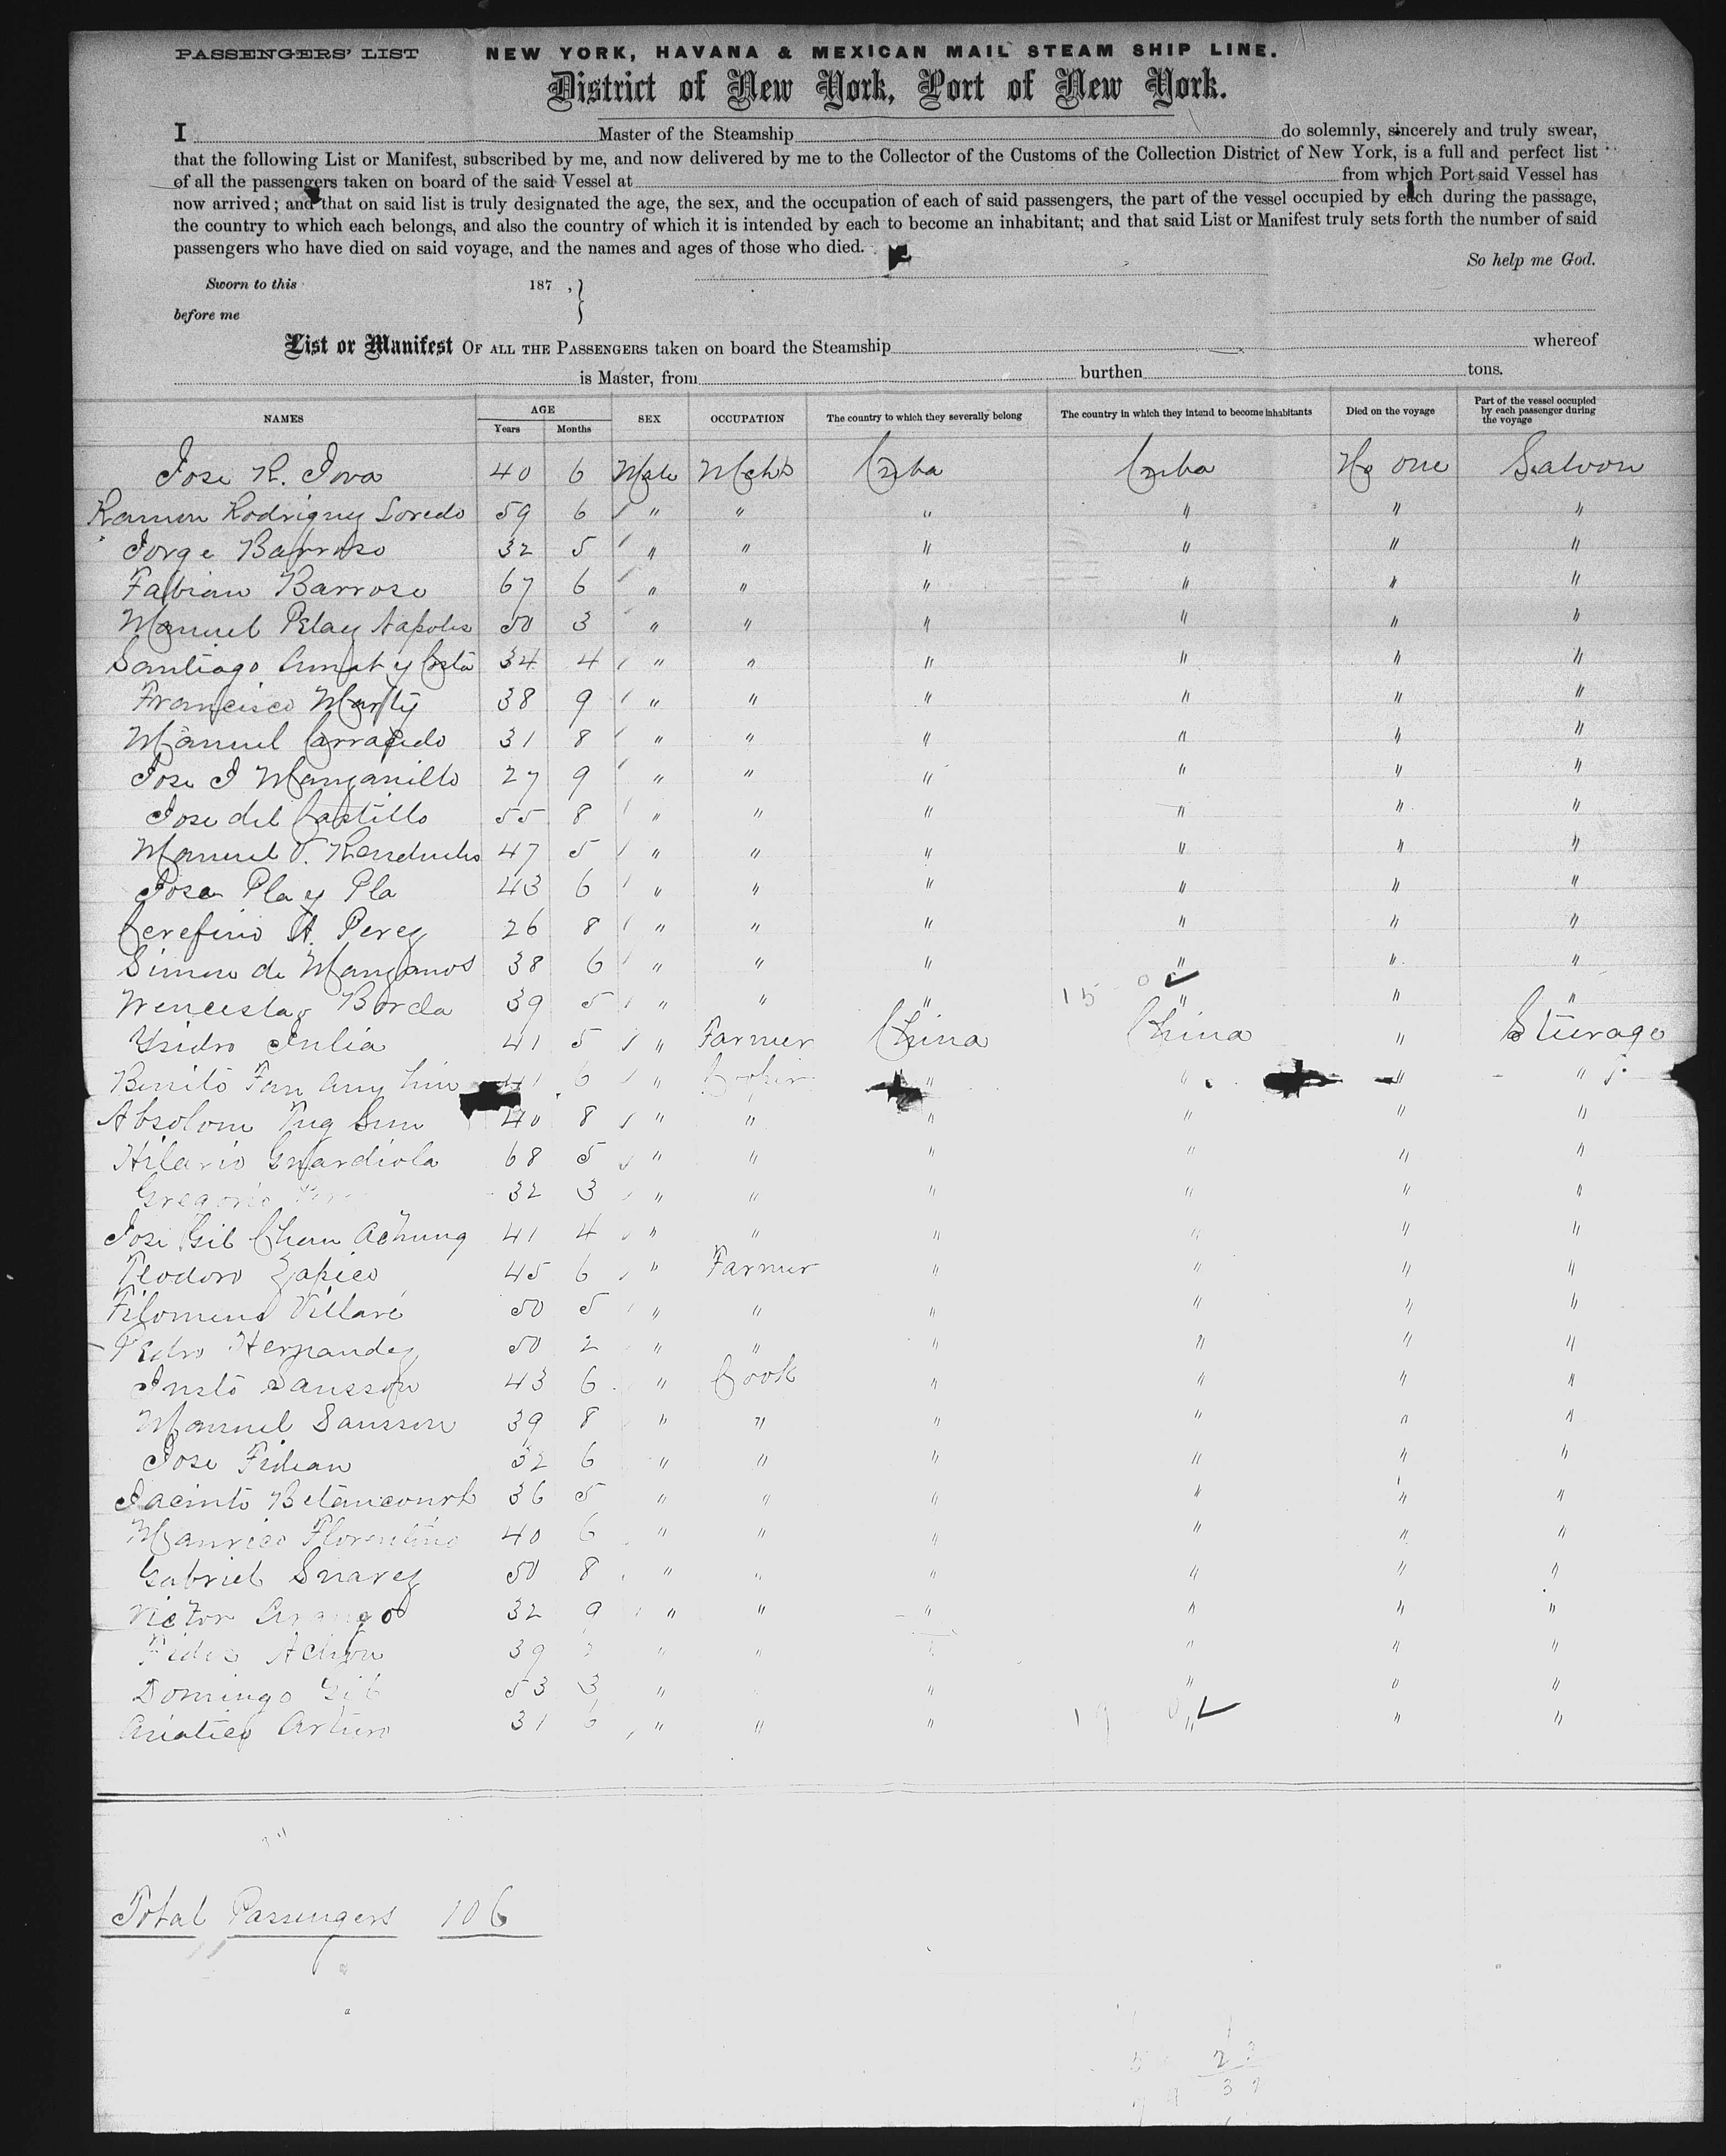 PASSENGERS' LIST NEW YORK, HAVANA & MEXICAN MAIL STEAM SHIP LINE.
District of New York, Port of New York.
I Master of the Steamship do solemnly, sincerely and truly swear,
that the following List or Manifest, subscribed by me, and now delivered by me to the Collector of the Customs of the Collection District of New York, is a full and perfect list
of all the passengers taken on board of the said Vessel at from which Port said Vessel has
now arrived; and that on said list is truly designated the age, the sex, and the occupation of each of said passengers, the part of the vessel occupied by each during the passage,
the country to which each belongs, and also the country of which it is intended by each to become an inhabitant; and that said List or Manifest truly sets forth the number of said
passengers who have died on said voyage, and the names and ages of those who died.
So help me God.
Sworn to this 187 , }
before me
List or Manifest OF ALL THE PASSENGERS taken on board the Steamship whereof
is Master, from burthen tons.
NAMES AGE Years Months SEX OCCUPATION The country to which they severally belong The country in which they intend to become inhabitants Died on the voyage Part of the vessel occupied by each passenger during the voyage
Jose R. Jova 40 6 Male Mcht Cuba Cuba None Saloon
Ramon Rodriguez Loredo 59 6 " " " " " "
Jorge Barroso 32 5 " " " " " "
Fabian Barroso 67 6 " " " " " "
Manuel Pelaez 50 3 " " " " " "
Santiago y Costa 34 4 " " " " " "
Francisco Marty 38 9 " " " " " "
Manuel Carracedo 31 8 " " " " " "
Jose J Manzanillo 27 9 " " " " " "
Jose del Castillo 55 8 " " " " " "
Manuel 47 5 " " " " " "
Jose Pla y Pla 43 6 " " " " " "
Ceferino A. Perez 26 8 " " " " " "
Simon de Manzanos 38 6 " " " " " "
15 0 ✓
Wenceslao Borda 39 5 " " " " " "
Ysidro Julia 41 5 " Farmer China China " Steerage
Benito Fan 41 6 " " " " "
Absolom 40 8 " " " " " "
Hilario Guardiola 68 5 " " " " " "
Gregorio 32 3 " " " " " "
Jose Gil Chan Achung 41 4 " " " " " "
Teodoro Zapico 45 6 " Farmer " " " "
Filomeno Villare 50 5 " " " " " "
Pedro Hernandez 50 2 " " " " " "
Justo Sausson 43 6 " Cook " " " "
Manuel Sausson 39 8 " " " " " "
Jose 32 6 " " " " " "
Jacinto Betancourt 36 5 " " " " " "
Florentino 40 6 " " " " " "
Gabriel Suarez 50 8 " " " " " "
Victor Arango 32 9 " " " " " "
Achon 39 " " " " "
Domingo Gil 53 3 " " " " "
Asiatico Arturo 31 6 " " " " " "
19 0 ✓
Total Passengers 106